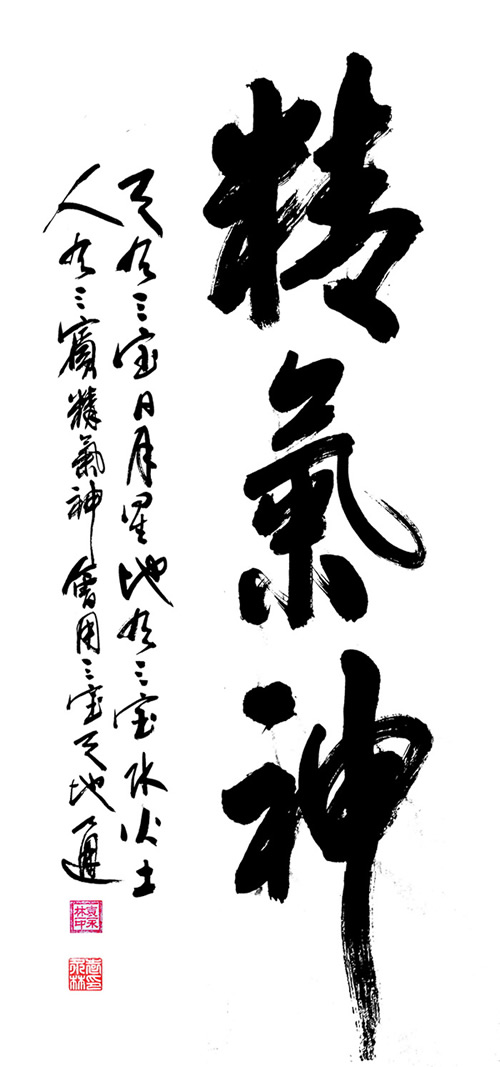 精氣神
天有三宝日月星地有三宝水火土
人有三寳精氣神會用三宝天地通